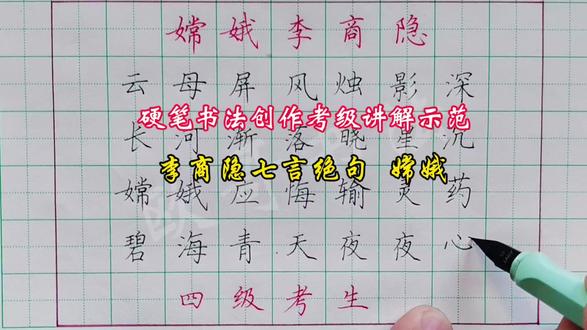 嫦娥李商隐
云母屏风烛影深
硬笔书法创作考级讲解示范
长河渐落晓星沉
李商隐七言绝句 嫦娥
嫦娥应悔输灵药
碧海青天夜夜心
四级考生